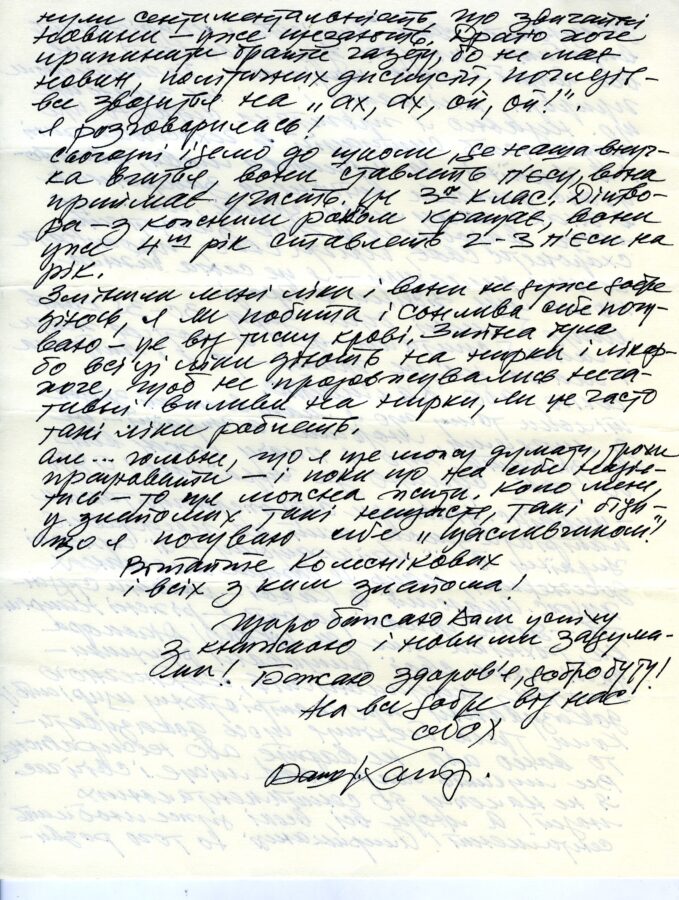 нули сентиментальність, що звичайні
новини – уже щезають. Драто хоче
припинити брати газету, бо не має
новин, політичних дискусій, поглядів –
все зводиться на „ах, ах, ой, ой!".
Я розговорилась!
Сьогодні ідемо до школи, де наша внуч-
ка вчиться, вони ставлять п'єсу, вона
приймає участь. Це 3й клас. Дітво-
ра – з кожним роком краща, вони
уже 4ий рік ставлять 2-3 п'єси на
рік.
Змінили мені ліки і вони не дуже добре
діють, я як побита і сонлива себе почу-
ваю – це від тиску крові. Зміна тут
бо всі ці ліки діють на нирки і лікар
хоче, щоб не продовжувались нега-
тивні впливи на нирки, як це часто
такі ліки роблять.
Але... головне, що я ще можу думати, трохи
працювати – і поки що на себе
– то ще можна жити. Коло мене,
у знайомих такі нещастя, такі біди –
що я почуваю себе „щасливчиком"!
Вітайте Колєснікових
і всіх з ким знайома!
Щиро бажаю Вам успіху
з книжкою і новими задума-
ми! Бажаю здоров'я, добробуту!
На все добре від нас
обох